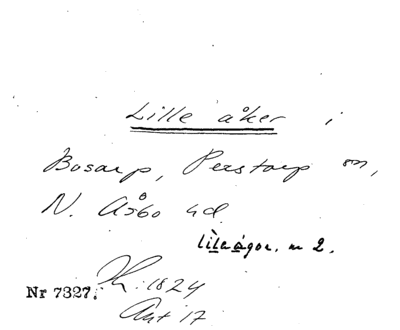 Lille åker i
Bosarp, Perstorp sn,
N. Åsbo hd.
lilaågor. m 2.
Lh. 1824
Nr 7327.
Akt 17